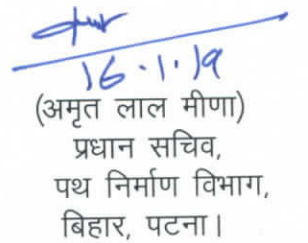 16.1.19
(अमृत लाल मीणा)
प्रधान सचिव,
पथ निर्माण विभाग,
बिहार, पटना।